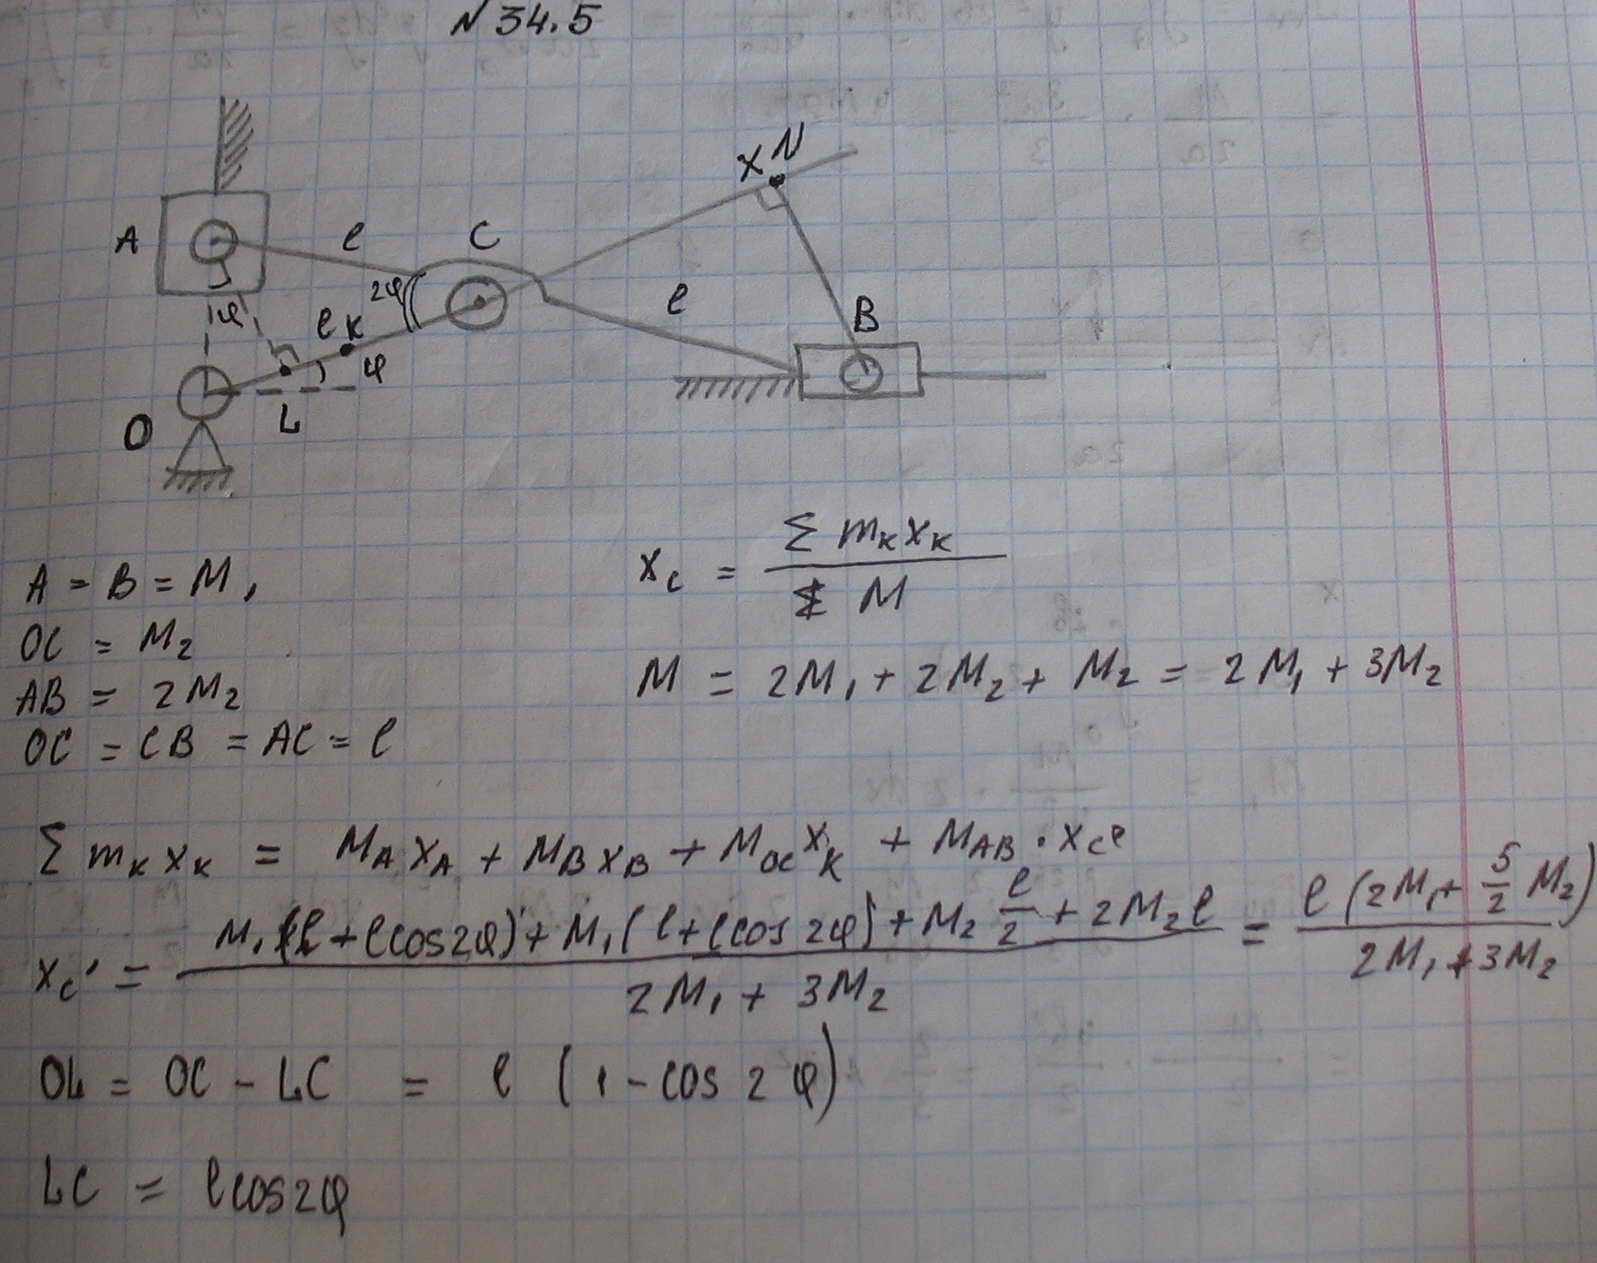 N 34.5
X N
A
l
C
2φ
l
B
φ
l K
φ
L
O
A = B = M₁
OC = M₂
AB = 2M₂
OC = CB = AC = l
x_c = Σ m_K x_K / M
M = 2M₁ + 2M₂ + M₂ = 2M₁ + 3M₂
Σ m_K x_K = M_A x_A + M_B x_B + M_OC x_K + M_AB · x_C
x_c' = (M₁(l + l cos 2φ) + M₁(l + l cos 2φ) + M₂ l/2 + 2M₂ l) / (2M₁ + 3M₂) = l (2M₁ + 5/2 M₂) / (2M₁ + 3M₂)
OL = OC - LC = l (1 - cos 2φ)
LC = l cos 2φ